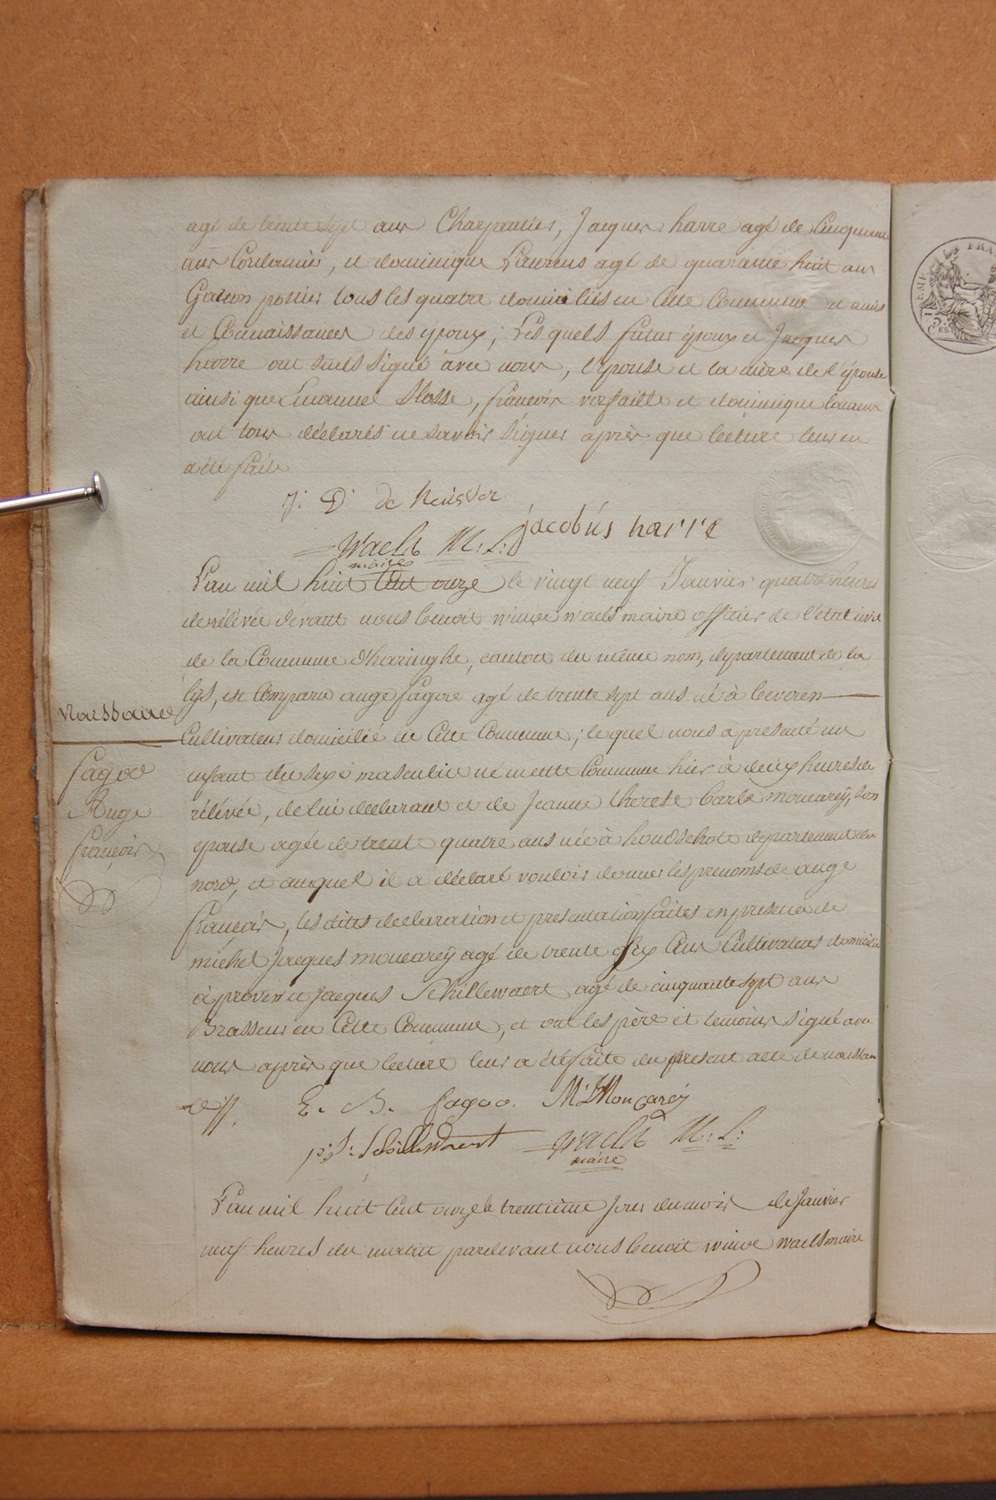 agé de trente sept ans Charpentier, Jacques harre agé de Cinquante
ans Cordonnier, et dominique Laurens agé de quarante huit ans
Garcon potier tous les quatre domiciliés en Cette Commune et amis
et Connaissances des époux; Les quels futur époux et Jacques
harre ont seuls signé avec nous, l'épouse et la mère de l'épouse
ainsi que Slosse, francois versaille et dominique Laurens
ont tous déclarés ne savoir signer après que lecture leur en
a été faite
J: D: de Keusver
jacobús harre
Waels M: L:
maire
L'an mil huit Cent onze le vingt neuf Janvier quatre heures
de rélévée dévant nous benoit winoc waels maire officier de l'état civil
de la Commune d'haringhe, canton du même nom, département de la
Lys, est Comparu ange fagoo agé de trente sept ans né à beveren
Naissance
Cultivateur domicilié en Cette Commune; lequel nous a presenté un
fagoo
enfant du sexe masculin né en cette Commune hier à deux heures de
Ange
rélévée, de lui déclarant et de Jeanne therese barbe moucarey, son
francois
epouse agée de trente quatre ans née à hondschote département du
nord, et auquel il a déclaré vouloir donner les prenoms de ange
francois, les dites declaration et presentation faites en presence de
michel Jacques moucareÿ agé de trente six ans Cultivateur domicilié
à proven et Jacques Schillewaert agé de cinquante sept ans
Brasseur en Cette Commune, et ont les père et temoins signé avec
nous après que lecture leur a été faite du present acte de naissan
ce //.
E. B. fagoo. M: J Moucareÿ
p: J: Schillewaert
Waels M: L:
maire
L'an mil huit Cent onze le trentieme jour du mois de Janvier
neuf heures du matin pardevant nous benoit winoc waels maire